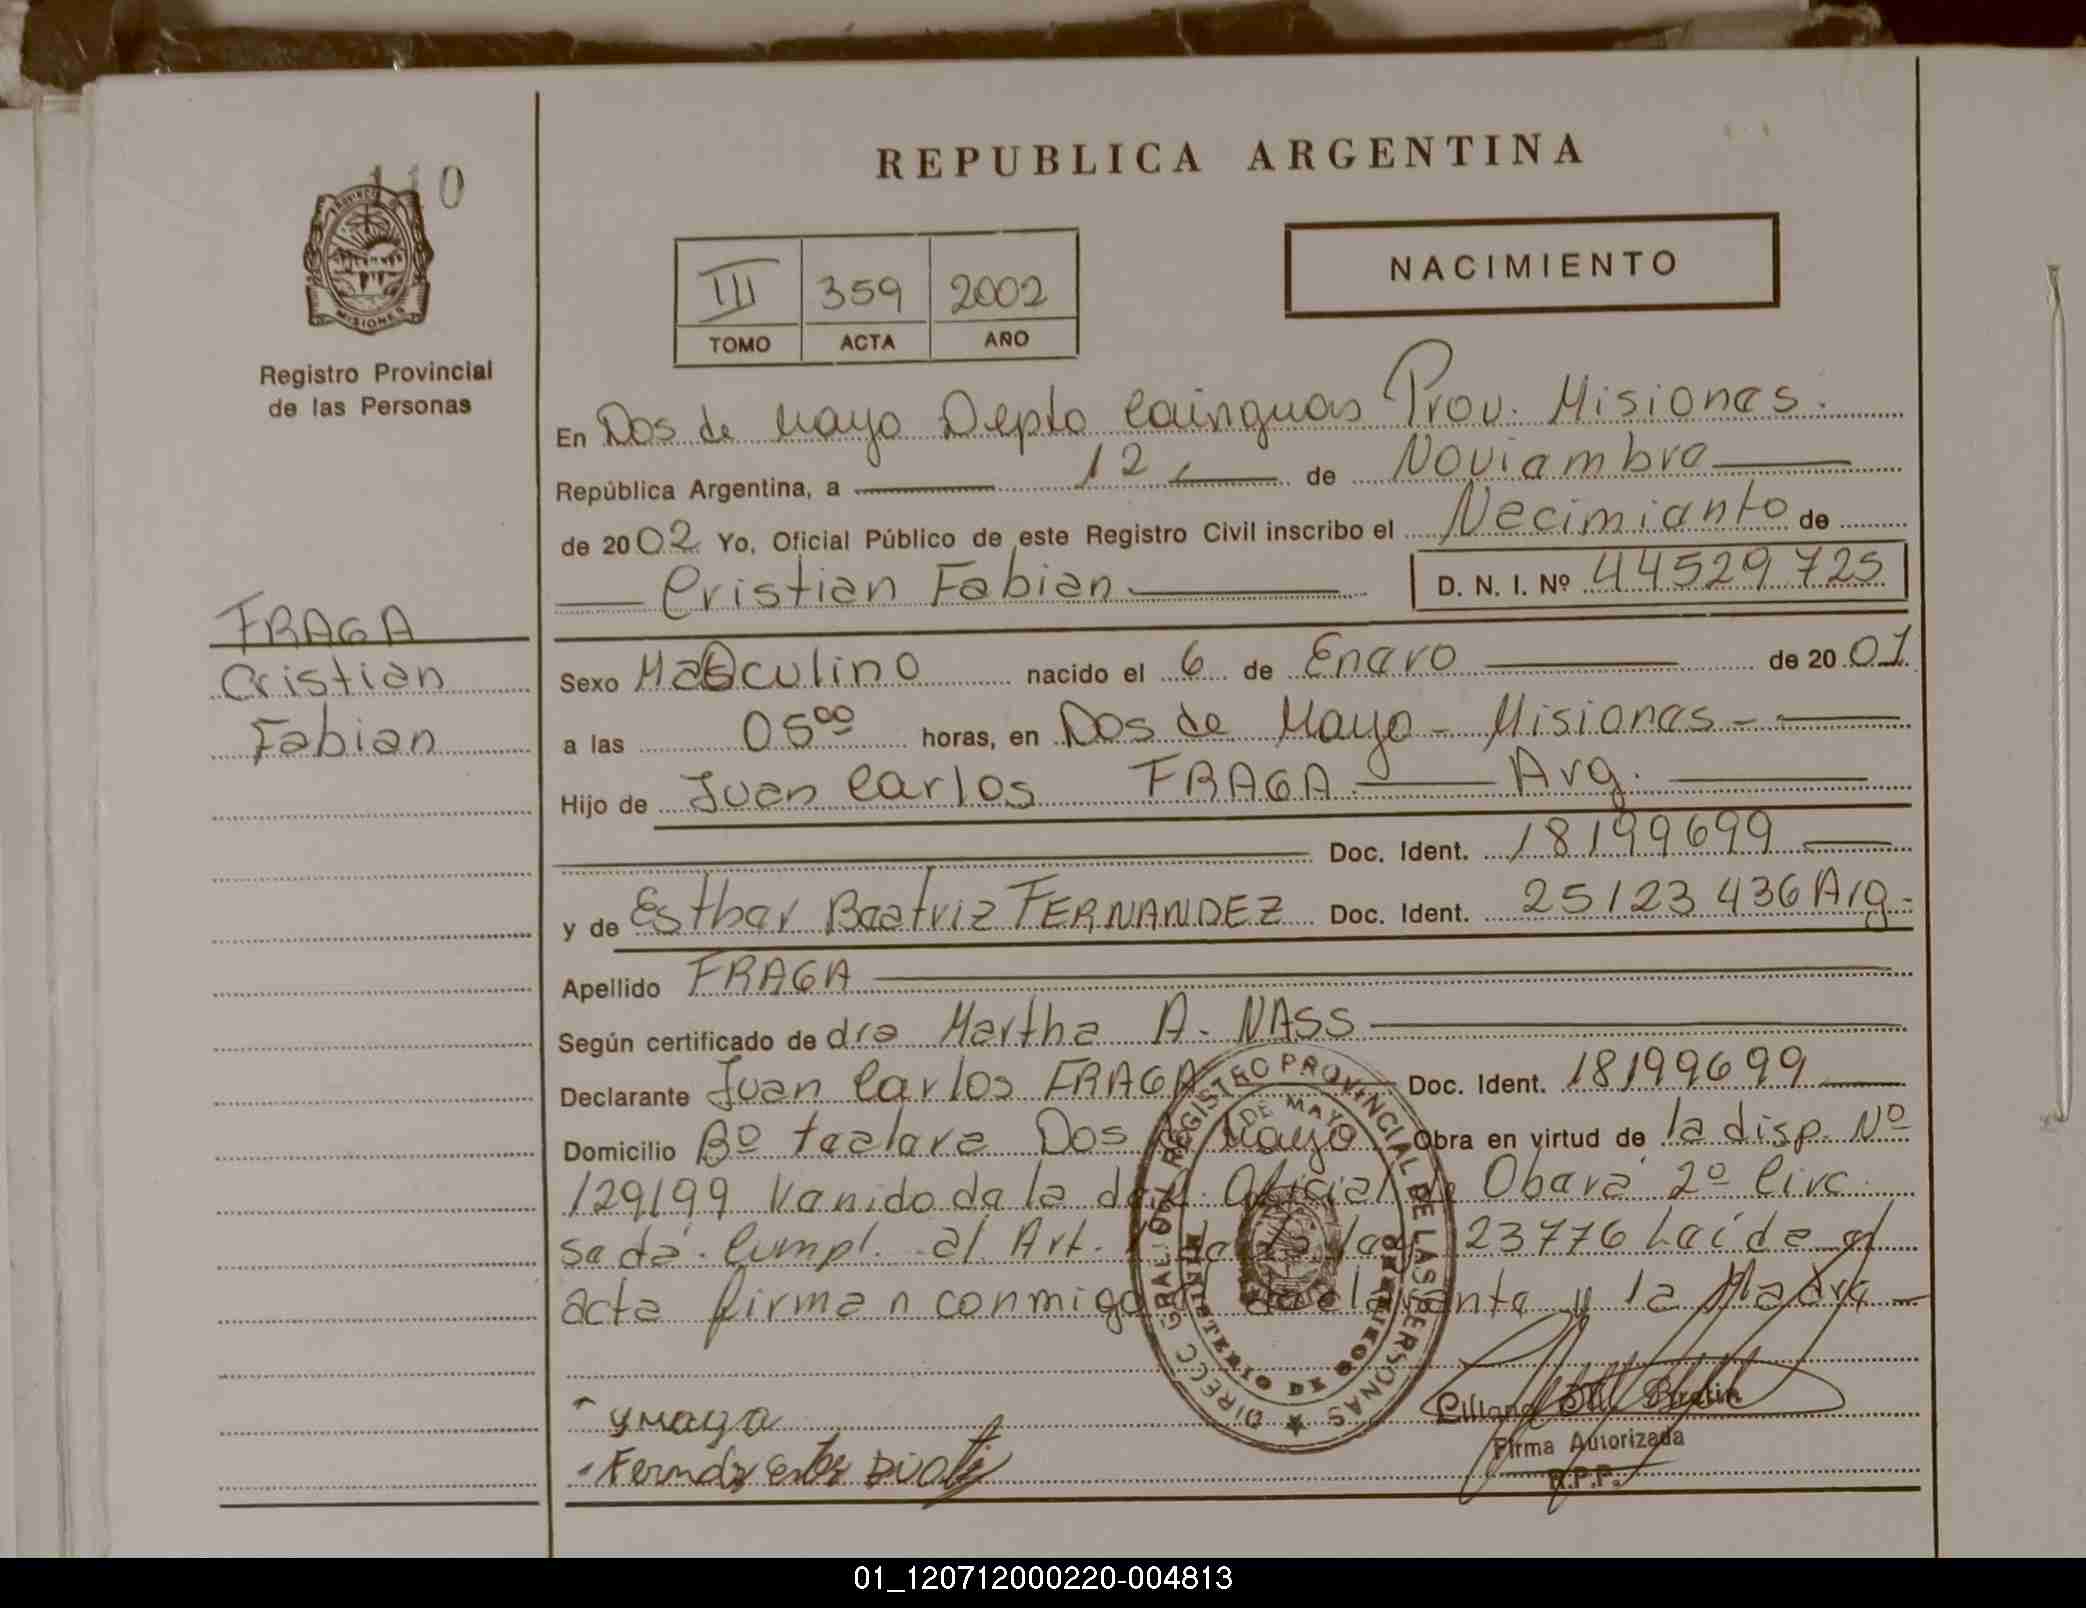 110
REPUBLICA ARGENTINA
PROVINCIA
MISIONES
Registro Provincial
de las Personas
III 359 2002
TOMO ACTA AÑO
NACIMIENTO
En Dos de Mayo Depto Cainguas Prov. Misiones.
República Argentina, a 12 de Noviembre
de 2002 Yo, Oficial Público de este Registro Civil inscribo el Necimiento de
Cristian Fabian D. N. I. Nº 44529725
FRAGA
Cristian
Fabian
Sexo Masculino nacido el 6 de Enero de 2001
a las 05⁰⁰ horas, en Dos de Mayo - Misiones -
Hijo de Juan Carlos FRAGA Arg.
Doc. Ident. 18199699
y de Esther Beatriz FERNANDEZ Doc. Ident. 25123436 Arg.
Apellido FRAGA
Según certificado de dra Martha A. NASS
Declarante Juan Carlos FRAGA Doc. Ident. 18199699
Domicilio Bº Mayo Obra en virtud de la disp. Nº
129199 Venido de la Oficial Obera 2º Circ.
se dá Cumpl. al Art. 23776 Leída el
acta firman conmigo el declarante y la Madre
DIRECC. GRAL. DEL REGISTRO PROVINCIAL DE LAS PERSONAS
DE MAYO
MINISTERIO DE GOBIERNO
Liliana
Firma Autorizada
R.P.P.
01_120712000220-004813